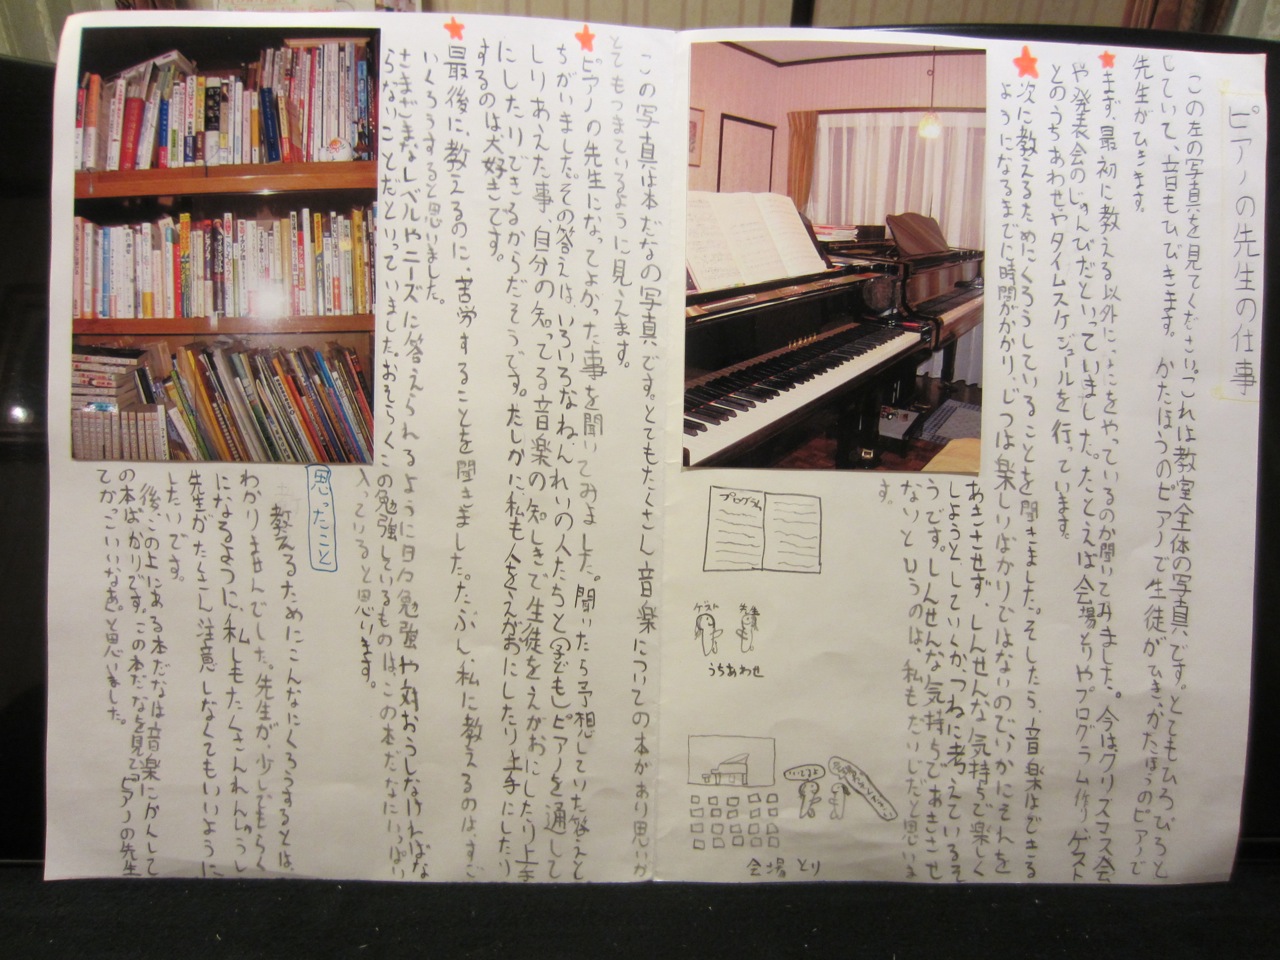 ピアノの先生の仕事
この左の写真を見てください。これは教室全体の写真です。とてもひろびろと
していて、音もひびきます。かたほうのピアノで生徒がひき、かたほうのピアノで
先生がひきます。
★まず、最初に教える以外になにをやっているのか聞いてみました。今はクリスマス会
や発表会のじゅんびだといっていました。たとえば会場とりやプログラム作り、ゲスト
とのうちあわせやタイムスケジュールを行っています。
★次に教えるためにくろうしていることを聞きました。そしたら、音楽はできる
ようになるまでに時間がかかり、じつは楽しいばかりではないので、いかにそれを
あきさせず、しんせんな気持ちで楽しく
しようとしていくか、つねに考えているそ
うです。しんせんな気持ちであきさせ
ないというのは、私もだいじだと思いま
す。
プログラム
ゲスト
先生
うちあわせ
いいですよ
会場とり
この写真は本だなの写真です。とてもたくさん音楽についての本があり思いが
とてもつまているように見えます。
★ピアノの先生になってよかった事を聞いてみました。聞いたら予想していた答えと
ちがいました。その答えは、いろいろなねんれいの人たちと(子どもも)ピアノを通して
しりあえた事、自分の知ってる音楽の知しきで生徒をえがおにしたり上手
にしたりできるからだそうです。たしかに、私も人をえがおにしたり上手にしたり
するのは大好きです。
★最後に、教えるのに、苦労することを聞きました。たぶん、私に教えるのは、すご
いくろうすると思いました。
さまざまなレベルやニーズに答えられるように日々勉強や対おうしなければな
らないことだといっていました。おそらくこの勉強しているものは、この本だなにいっぱい
入っていると思います。
思ったこと
教えるためにこんなにくろうするとは、
わかりませんでした。先生が、少しでもらく
になるように、私もたくさんれんしゅうし
先生がたくさん注意しなくてもいいように
したいです。
後、この上にある本だなは音楽にかんして
の本ばかりです。この本だなを見て「ピアノの先生
てかっこいいなあ」と思いました。
YAMAHA